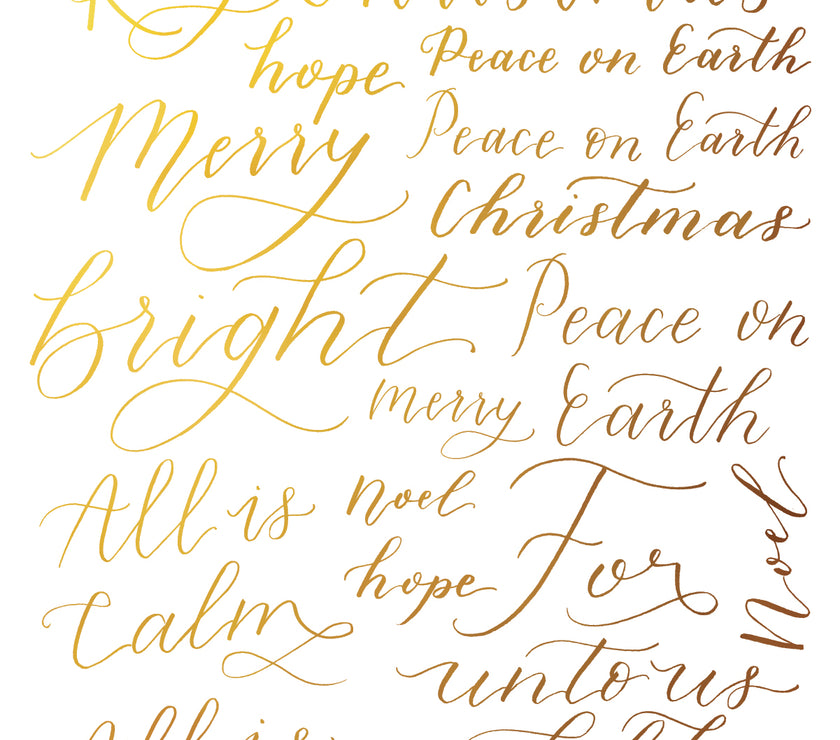 hope
Peace on Earth
Merry
Peace on Earth
Christmas
bright
Peace on
Earth
merry
All is
Calm
noel
hope
For
unto us
Noel
All is